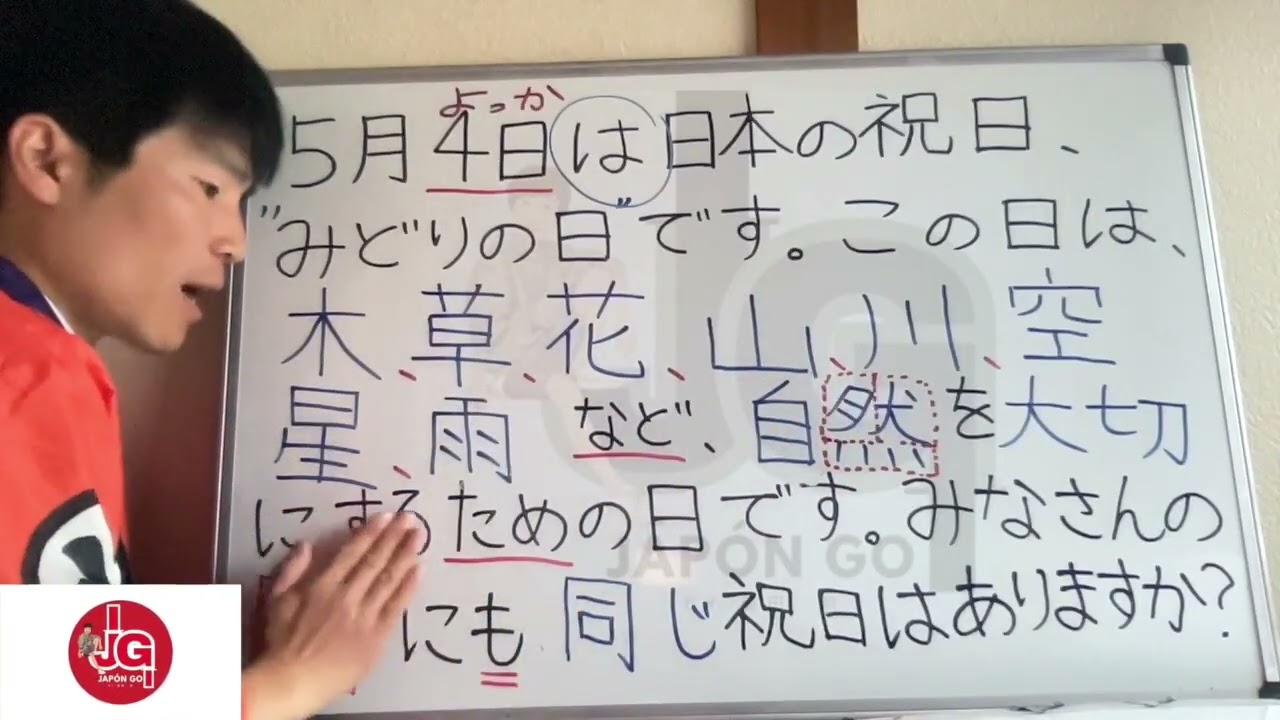 よっか
5月4日は日本の祝日、
"みどりの日"です。この日は、
木、草、花、山、川、空
星、雨など、自然を大切
にするための日です。みなさんの
にも同じ祝日はありますか?
JAPÓN GO
JG
JAPÓN GO